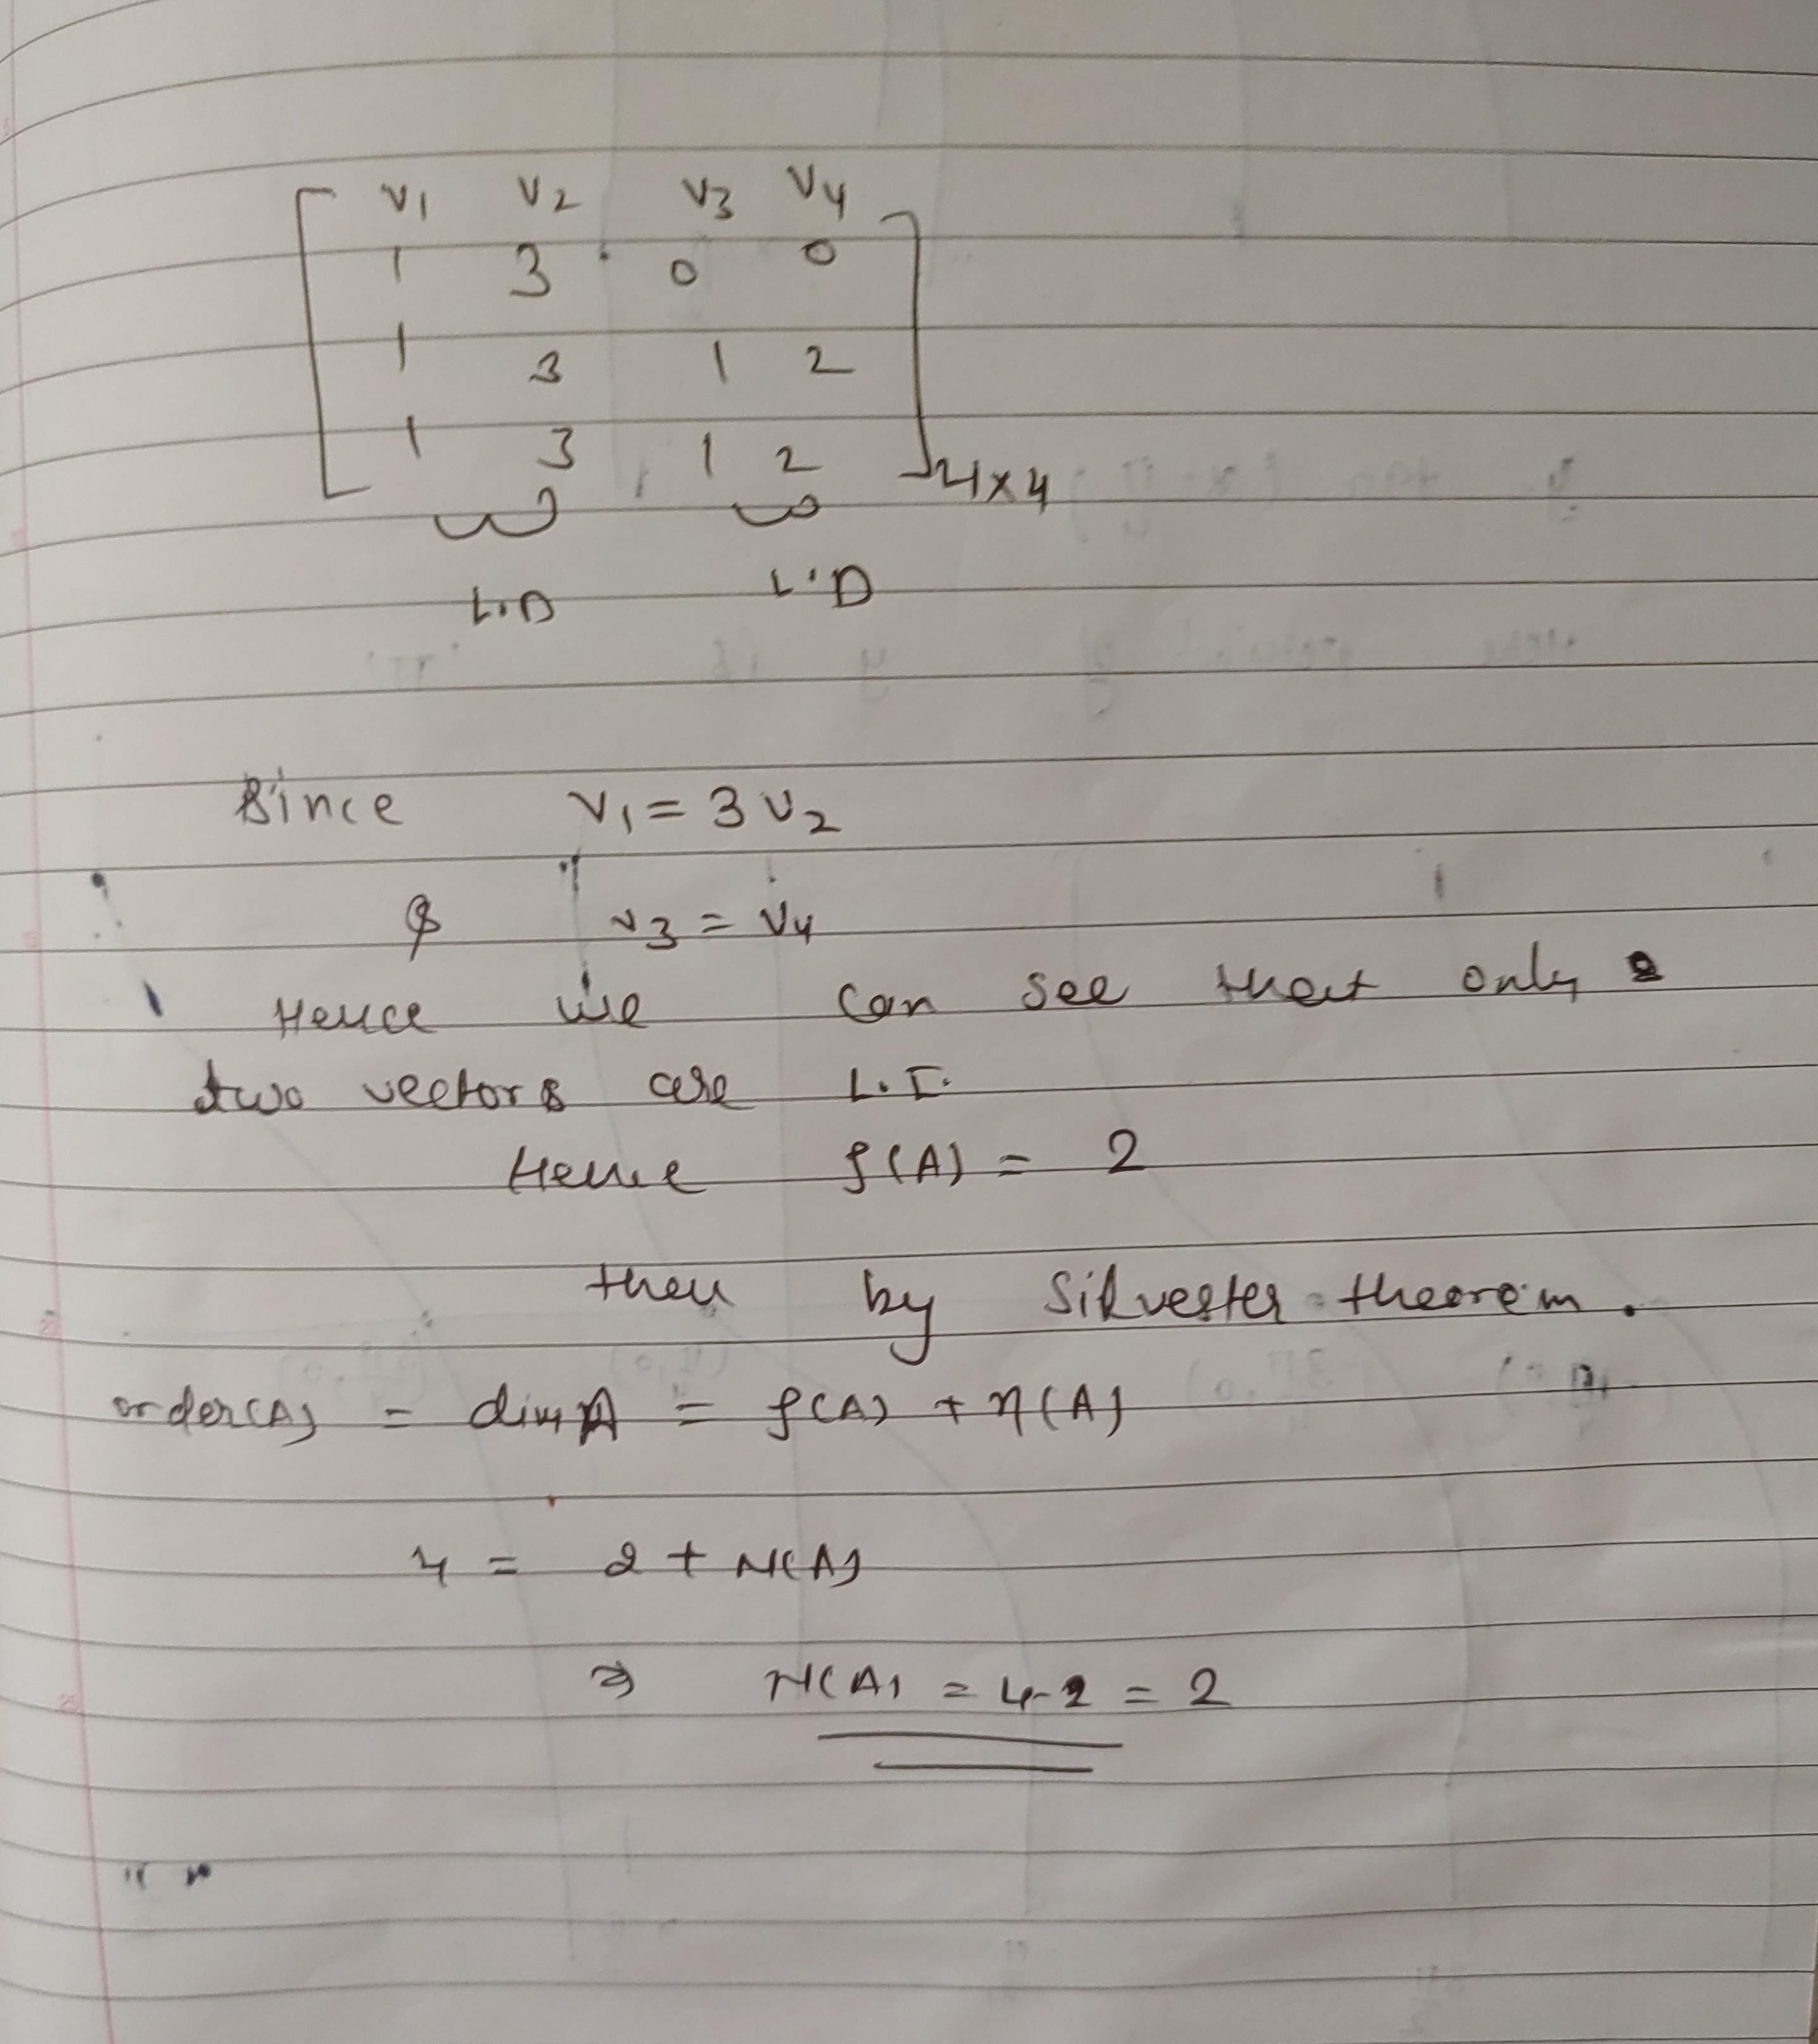 v1 v2 v3 v4
1 3 0 0
1 3 1 2
1 3 1 2
4×4
L.D L.D
Since v1 = 3 v2
& v3 = v4
Hence we can see that only
two vectors are L.I.
Hence ρ(A) = 2
then by Silvester theorem.
order(A) = dim A = ρ(A) + η(A)
4 = 2 + N(A)
⇒ N(A) = 4-2 = 2